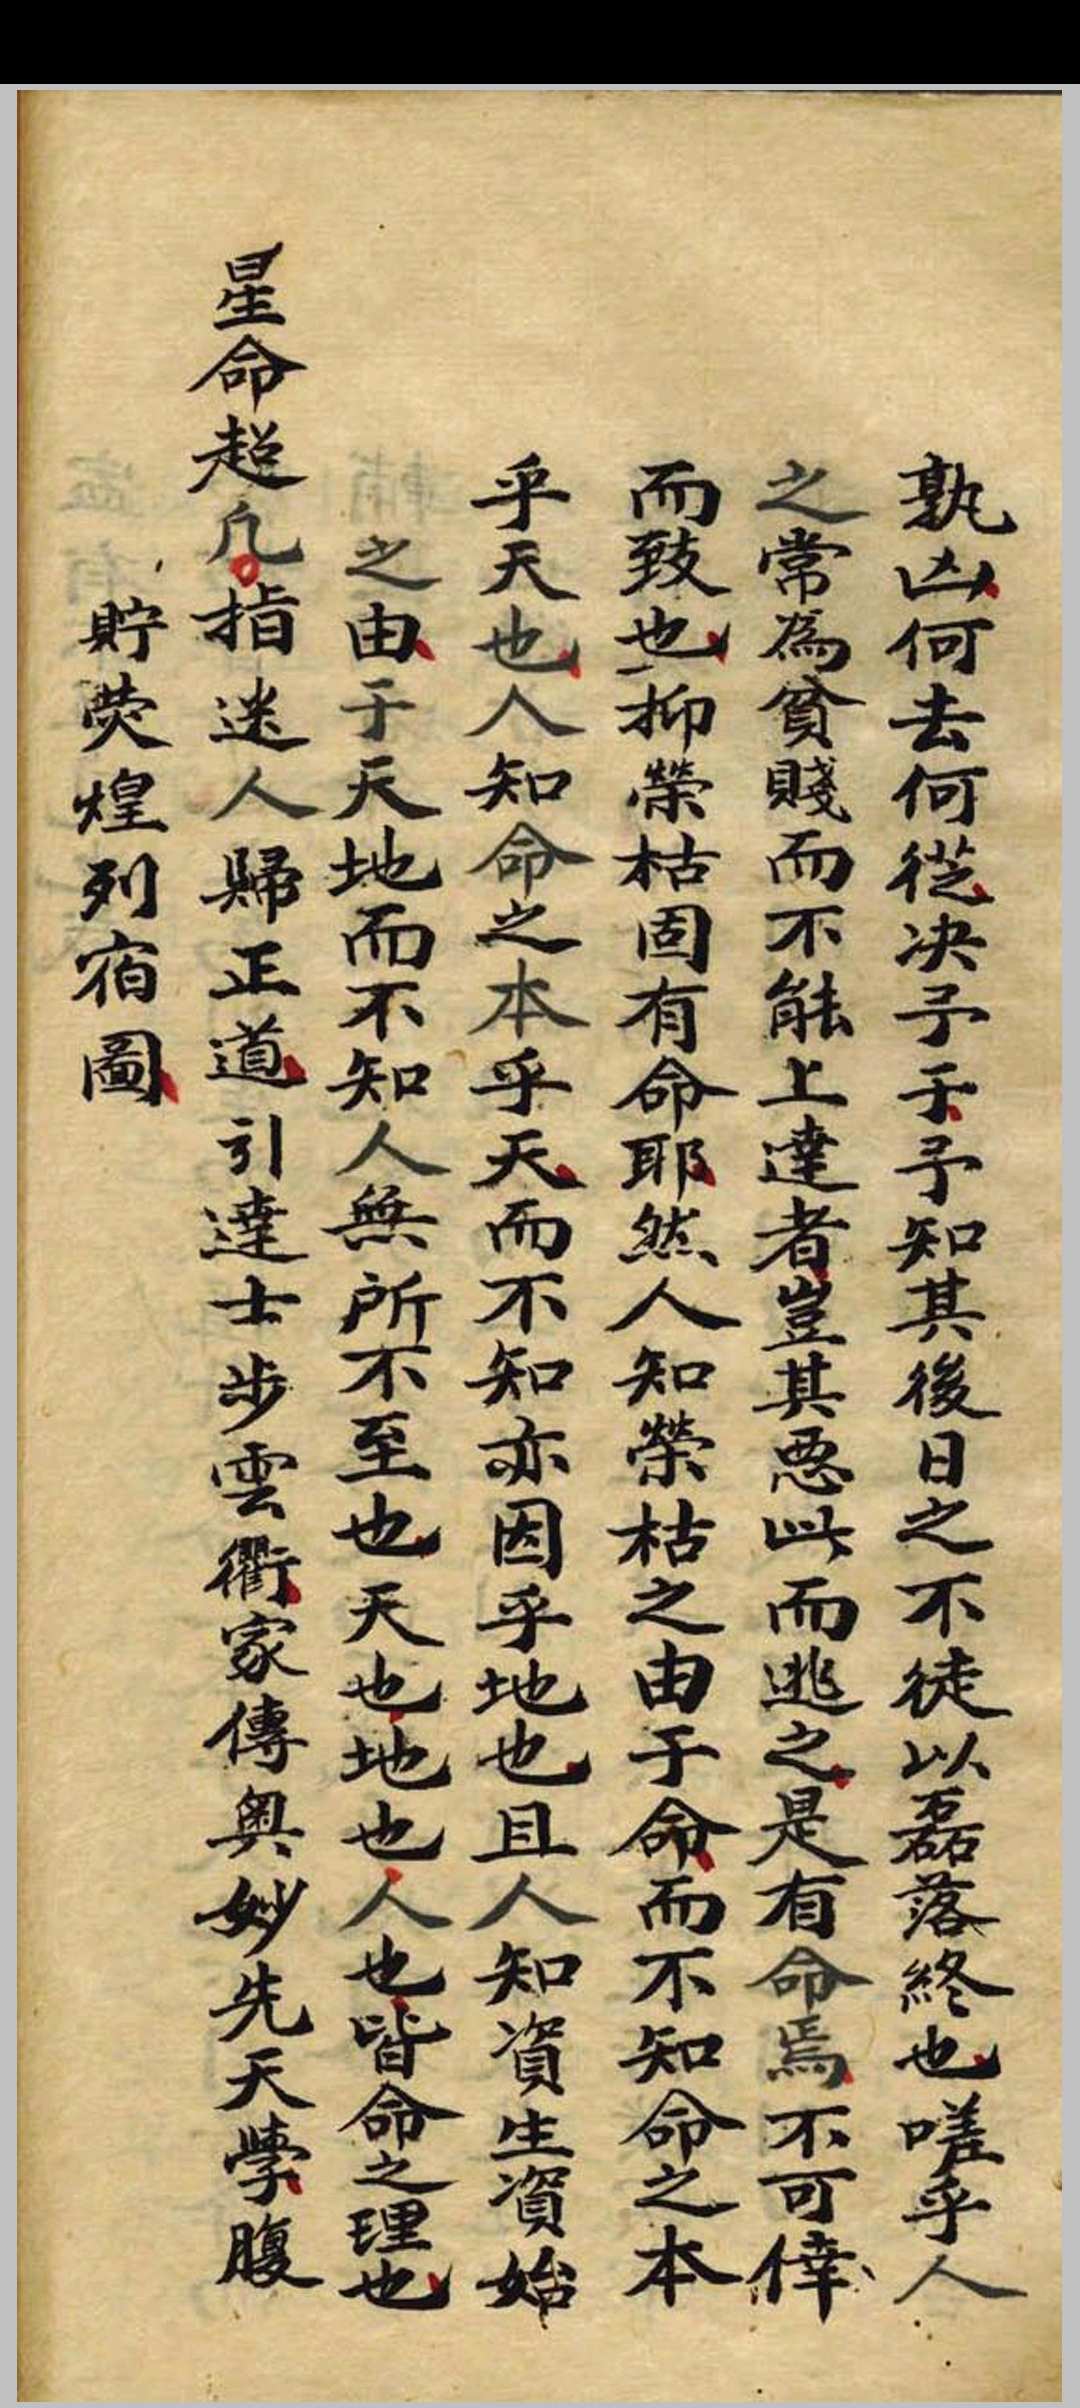 孰凶何去何從决予于予知其後日之不徒以磊落終也嗟乎人
之常為貧賤而不能上達者豈其惡此而逃之是有命焉不可倖
而致也抑榮枯固有命耶然人知榮枯之由于命而不知命之本
乎天也人知命之本乎天而不知亦因乎地也且人知資生資始
之由于天地而不知人無所不至也天也地也人也皆命之理也
星命超凡指迷人歸正道引達士步雲衢家傳奥妙先天學腹
貯熒煌列宿圖